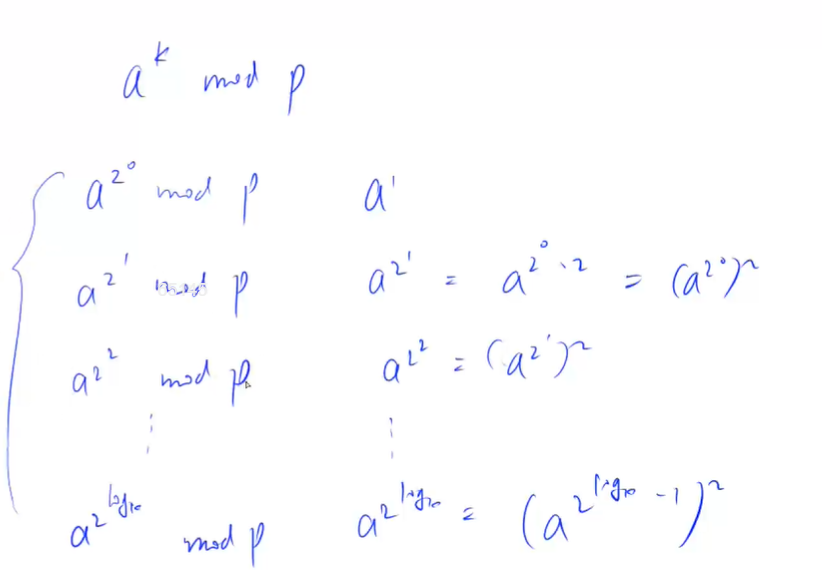 a^k mod p
a^{2^0} mod p a^1
a^{2^1} mod p a^{2^1} = a^{2^0 · 2} = (a^{2^0})^2
a^{2^2} mod p a^{2^2} = (a^{2^1})^2
a^{2^{log}} mod p a^{2^{log}} = (a^{2^{log} - 1})^2